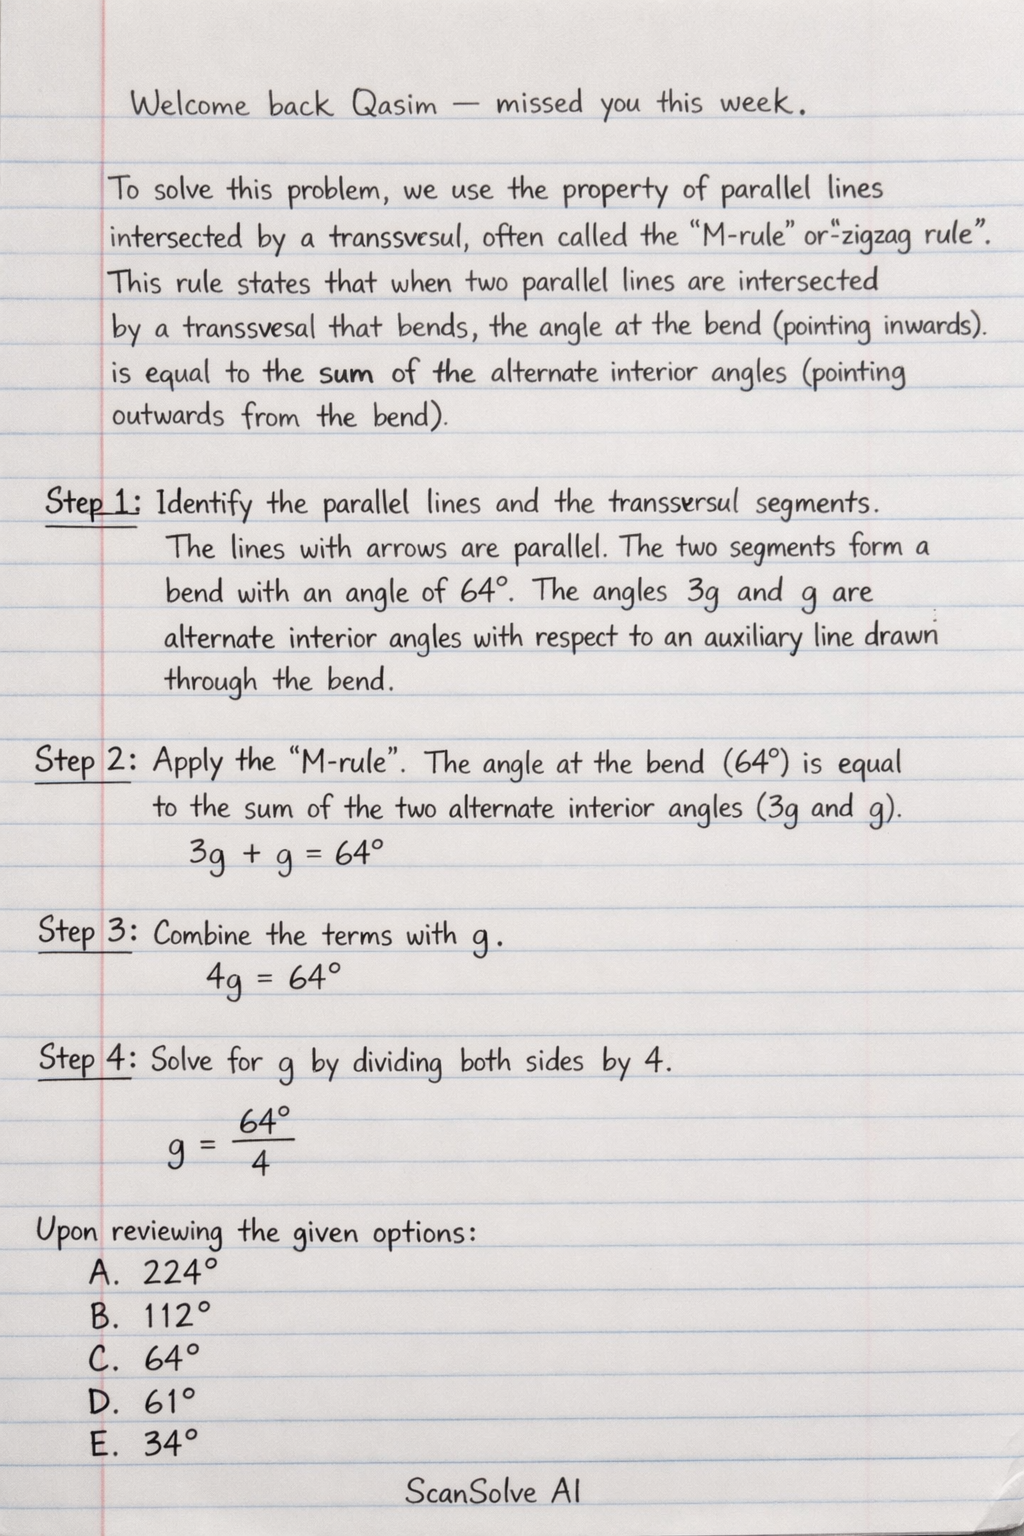 Welcome back Qasim — missed you this week.
To solve this problem, we use the property of parallel lines
intersected by a transsvesul, often called the “M-rule” or “zigzag rule”.
This rule states that when two parallel lines are intersected
by a transsvesal that bends, the angle at the bend (pointing inwards).
is equal to the sum of the alternate interior angles (pointing
outwards from the bend).
Step 1: Identify the parallel lines and the transsersul segments.
The lines with arrows are parallel. The two segments form a
bend with an angle of 64°. The angles 3g and g are
alternate interior angles with respect to an auxiliary line drawn
through the bend.
Step 2: Apply the “M-rule”. The angle at the bend (64°) is equal
to the sum of the two alternate interior angles (3g and g).
3g + g = 64°
Step 3: Combine the terms with g.
4g = 64°
Step 4: Solve for g by dividing both sides by 4.
g = 64° / 4
Upon reviewing the given options:
A. 224°
B. 112°
C. 64°
D. 61°
E. 34°
ScanSolve AI